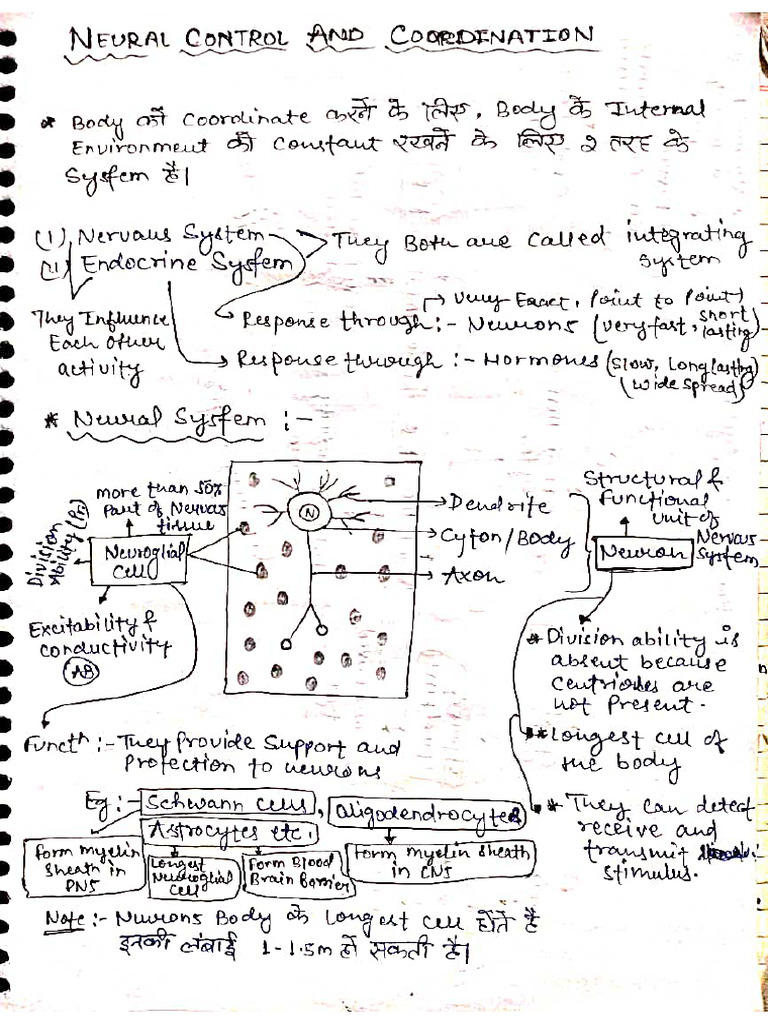 NEURAL CONTROL AND COORDINATION
* Body को Coordinate करने के लिए, Body के Internal
Environment को Constant रखने के लिए 2 तरह के
System है।
(1) Nervous System
(11) Endocrine System
They Both are called integrating
system
They Influence
Each Other
activity
Very Exact, Point to Point
Response through :- Neurons (very fast, short
lasting)
Response through :- Hormones (Slow, Long lasting)
(Wide Spread)
* Neural System :-
more than 50%
Part of Nervous
tissue
Division
Ability (Pr)
Neuroglial
Cell
Excitability &
conductivity
AB
N
Dendrite
Cyton/Body
Axon
Structural &
Functional
unit of
Nervous
System
Neuron
* Division ability is
absent because
centrioles are
not Present.
** Longest cell of
the body
* They can detect
receive and
transmit
stimulus.
Functn :- They Provide Support and
Protection to neurons
Eg :- Schwann cells, Oligodendrocytes
Astrocytes etc.
Form myelin
Sheath in
PNS
Longest
Neuroglial
Cell
Form Blood
Brain Barrier
Form myelin Sheath
in CNS
Note :- Neurons Body के Longest cell होते है
इनकी लंबाई 1-1.5m हो सकती है।